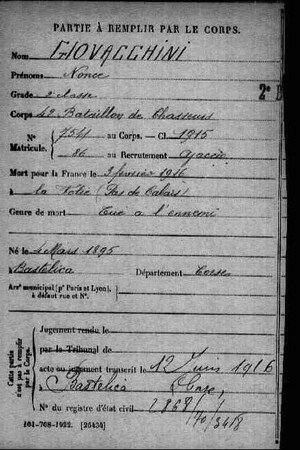 PARTIE À REMPLIR PAR LE CORPS.
Nom GIOVACCHINI
Prénoms Nonce
Grade 2e classe
2e B
Corps 42 Bataillon de Chasseurs
Nº 7511 au Corps. — Cl. 1915
Matricule. 86 au Recrutement Ajaccio
Mort pour la France le 3 février 1916
à la Folie (Pas de Calais)
Genre de mort Tué à l'ennemi
Né le 4 Mars 1895
Bastelica Département Corse
Arrt municipal (pr Paris et Lyon), à défaut rue et Nº.
Cette partie n'est pas à remplir par le Corps.
Jugement rendu le
par le Tribunal de
acte ou jugement transcrit le 12 Juin 1916
Bastelica Corse
Nº du registre d'état civil 2868/
70/3418
101-708-1922. [26434]